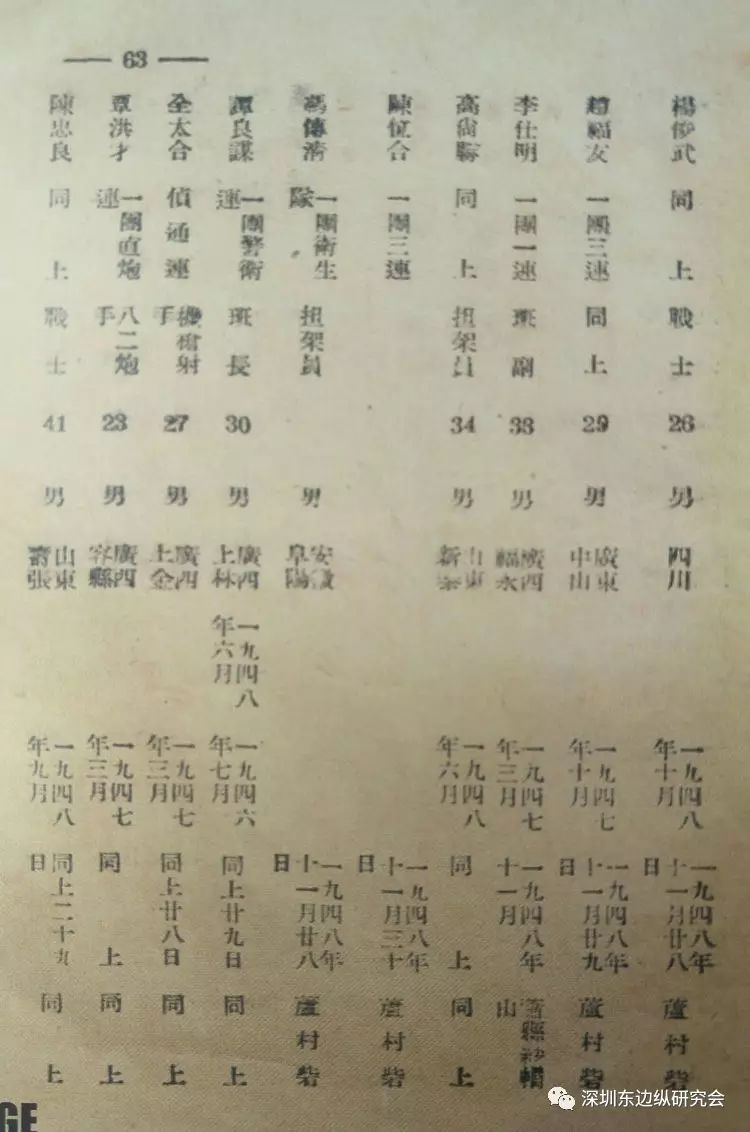 — 63 —
楊俊武 同上 戰士 26 男 四川 一九四八年十月 一九四八年十一月廿八日 蘆村砦
趙福友 一團三連 同上 29 男 廣東中山 一九四七年十月 一九四八年十一月廿九日 蘆村砦
李仕明 一團一連 班副 33 男 廣西福永 一九四七年三月 一九四八年十一月 縣 山
高尙 同上 扭架員 34 男 山東新泰 一九四八年六月 同上 同上
陳恆合 一團三連 一九四八年十一月三十日 蘆村砦
馮傳淸 一團衛生隊 扭架員 男 安徽阜陽 一九四八年十一月廿八日 蘆村砦
譚良謀 一團警衛連 班長 30 男 廣西上林 一九四八年六月 一九四六年七月 同上廿九日 同上
全太合 偵通連 機槍射手 27 男 廣西上金 一九四七年三月 同上廿八日 同上
覃洪才 一團直炮連 八二炮手 23 男 廣西容縣 一九四七年三月 同上 同上
陳忠良 同上 戰士 41 男 山東壽張 一九四八年九月 同上二十九日 同上
GE
深圳东边纵研究会